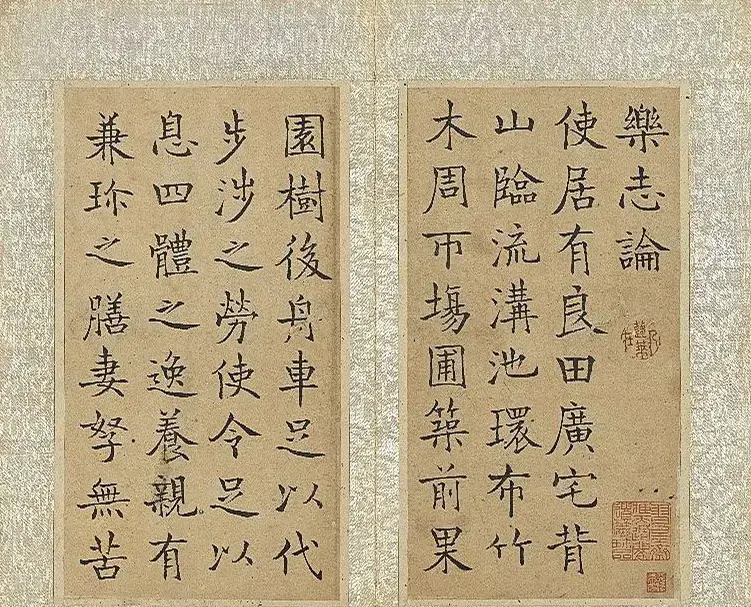 樂志論
使居有良田廣宅背
山臨流溝池環布竹
木周帀場圃築前果
園樹後舟車足以代
步涉之勞使令足以
息四體之逸養親有
兼珎之膳妻孥無苦